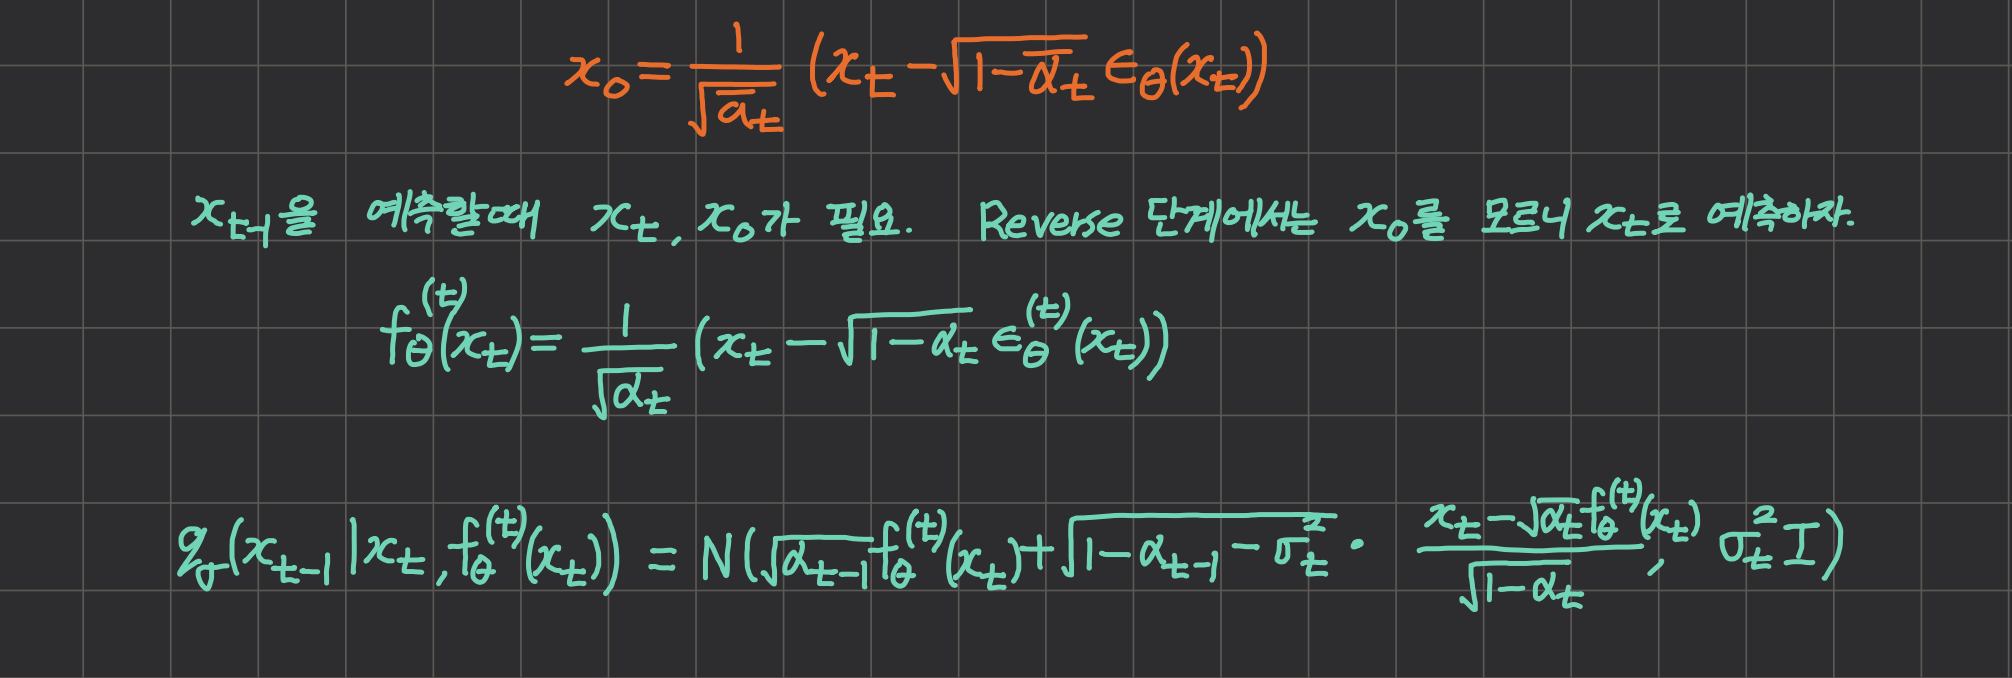 x₀ = 1/√ᾱₜ (xₜ − √(1−ᾱₜ) ϵ_θ(xₜ))
xₜ₋₁을 예측할때 xₜ, x₀가 필요. Reverse 단계에서는 x₀를 모르니 xₜ로 예측하자.
f_θ^(t)(xₜ) = 1/√αₜ (xₜ − √(1−αₜ) ϵ_θ^(t)(xₜ))
q_σ(xₜ₋₁ | xₜ, f_θ^(t)(xₜ)) = N(√αₜ₋₁ f_θ^(t)(xₜ) + √(1−αₜ₋₁−σₜ²) · (xₜ − √αₜ f_θ^(t)(xₜ))/√(1−αₜ), σₜ² I)